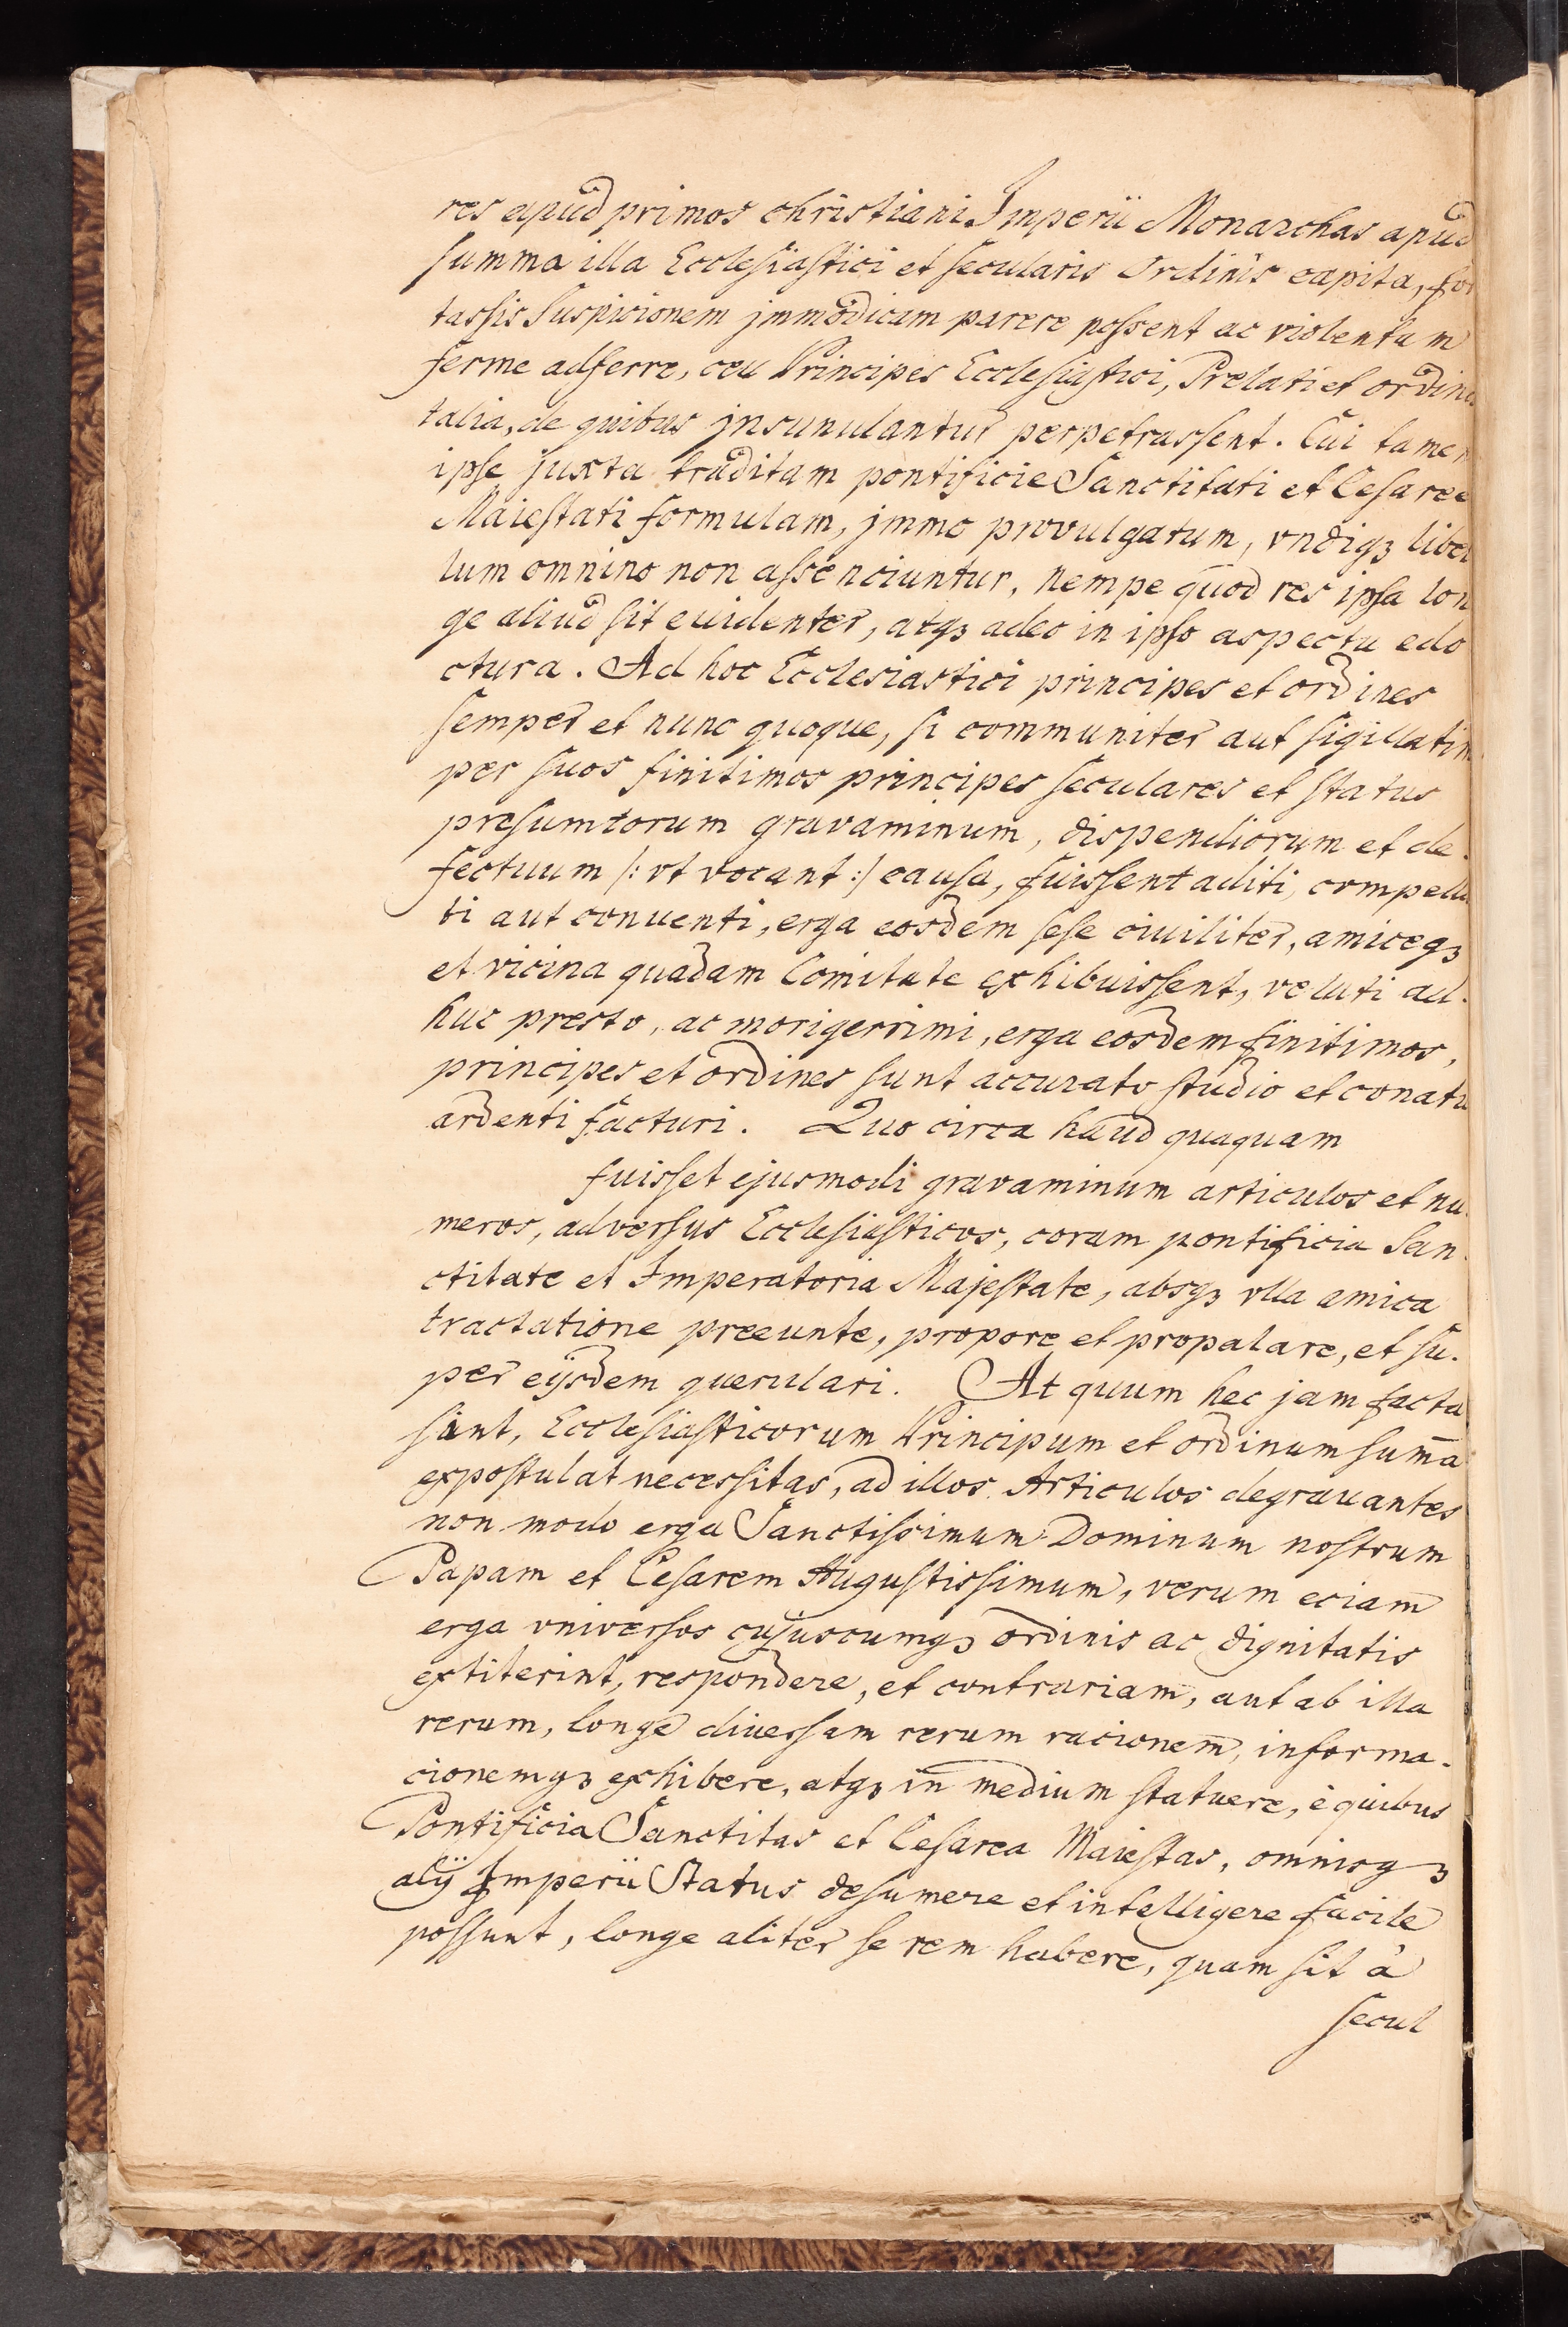 res apud primos christiani Imperii Monarchas apud
summa illa Ecclesiastici et secularis Ordinis capita, for
tassis Suspicionem jmmodicam parere possent ac violentam
ferme adferre, ceu Principes Ecclesiastici, Prelati et ordines
talia, de quibus jnsunulantur perpetrassent. Cui tamen
ipse juxta traditam pontificie Sanctitati et Cesaree
Maiestati formulam, jmmo provulgatum, vndiqꝫ libel
lum omnino non assenciuntur, nempe quod res ipsa lon
ge aliud sit euidenter, atqꝫ adeo in ipso aspectu edo
ctura. Ad hoc Ecclesiastici principes et ordines
semper et nunc quoque, si communiter aut sigillatim
per suos finitimos principes seculares et status
presumtorum gravaminum, dispendiorum et de.
fectuum /: vt vocant :/ causa, fuissent aditi, compella
ti aut conuenti, erga eosdem sese ciuiliter, amiceqꝫ
et vicina quadam Comitate exhibuissent, veluti ad.
huc presto, ac morigerrimi, erga eosdem finitimos,
principes et ordines sunt accurato studio et conatu
ardenti facturi. Quo circa haud quaquam
fuisset ejusmodi gravaminum articulos et nu.
meros, adversus Ecclesiasticos, coram pontificia San.
ctitate et Imperatoria Majestate, absqꝫ vlla amica
tractatione preeunte, propore et propalare, et su.
per eijsdem querulari. At quum hec jam facta
sint, Ecclesiasticorum Principum et ordinum sum̄a
expostulat necessitas, ad illos Articulos degrauantes
non modo erga Sanctissimum Dominum nostrum
Papam et Cesarem Augustissimum, verum eciam
erga vniversos cujuscumqꝫ ordinis ac dignitatis
extiterint, respondere, et contrariam, aut ab illa
rerum, longe diuersam rerum racionem, informa.
cionemqꝫ exhibere, atqꝫ in medium statuere, è quibus
Pontificia Sanctitas et Cesarea Maiestas, omnisqꝫ
alÿ Imperii Status desumere et intelligere facile
possunt, longe aliter se rem habere, quam sit à
secul